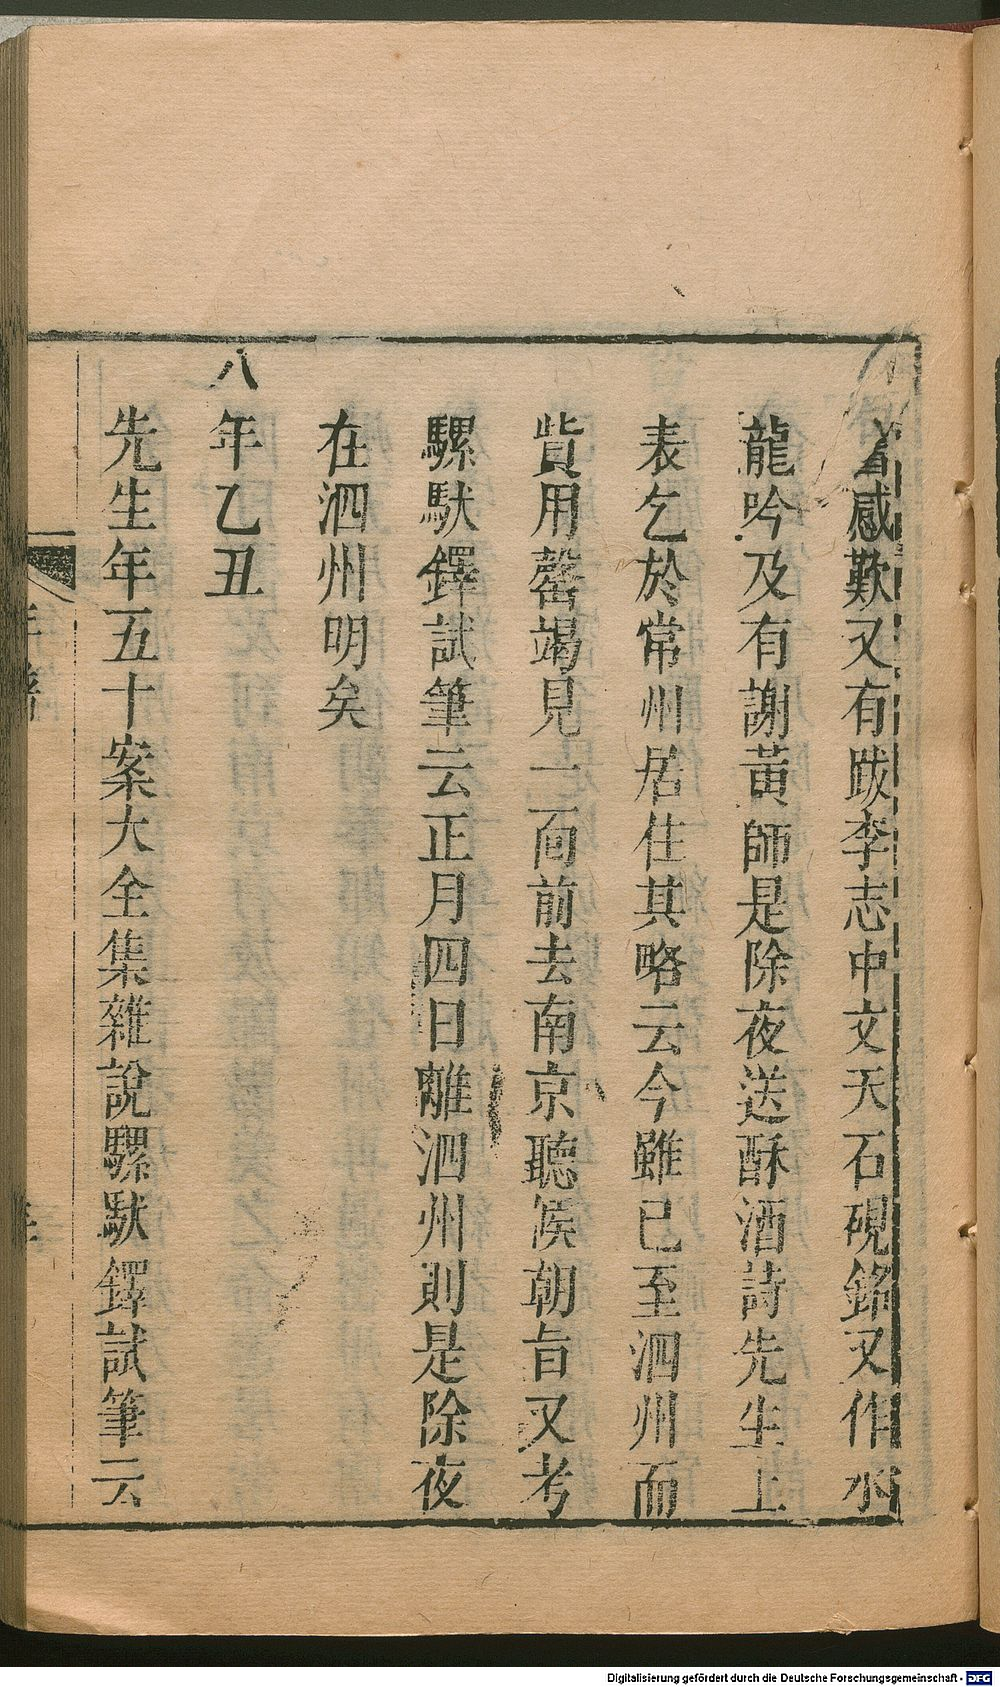 着感歎又有跋李志中文天石硯銘又作水
龍吟及有謝黃師是除夜送酥酒詩先生上
表乞於常州居住其略云今雖已至泗州而
貲用罄竭見一面前去南京聽候朝旨又考
騾馱鐸試筆云正月四日離泗州則是除夜
在泗州明矣
八年乙丑
先生年五十案大全集雜說騾馱鐸試筆云
年譜
Digitalisierung gefördert durch die Deutsche Forschungsgemeinschaft - DFG